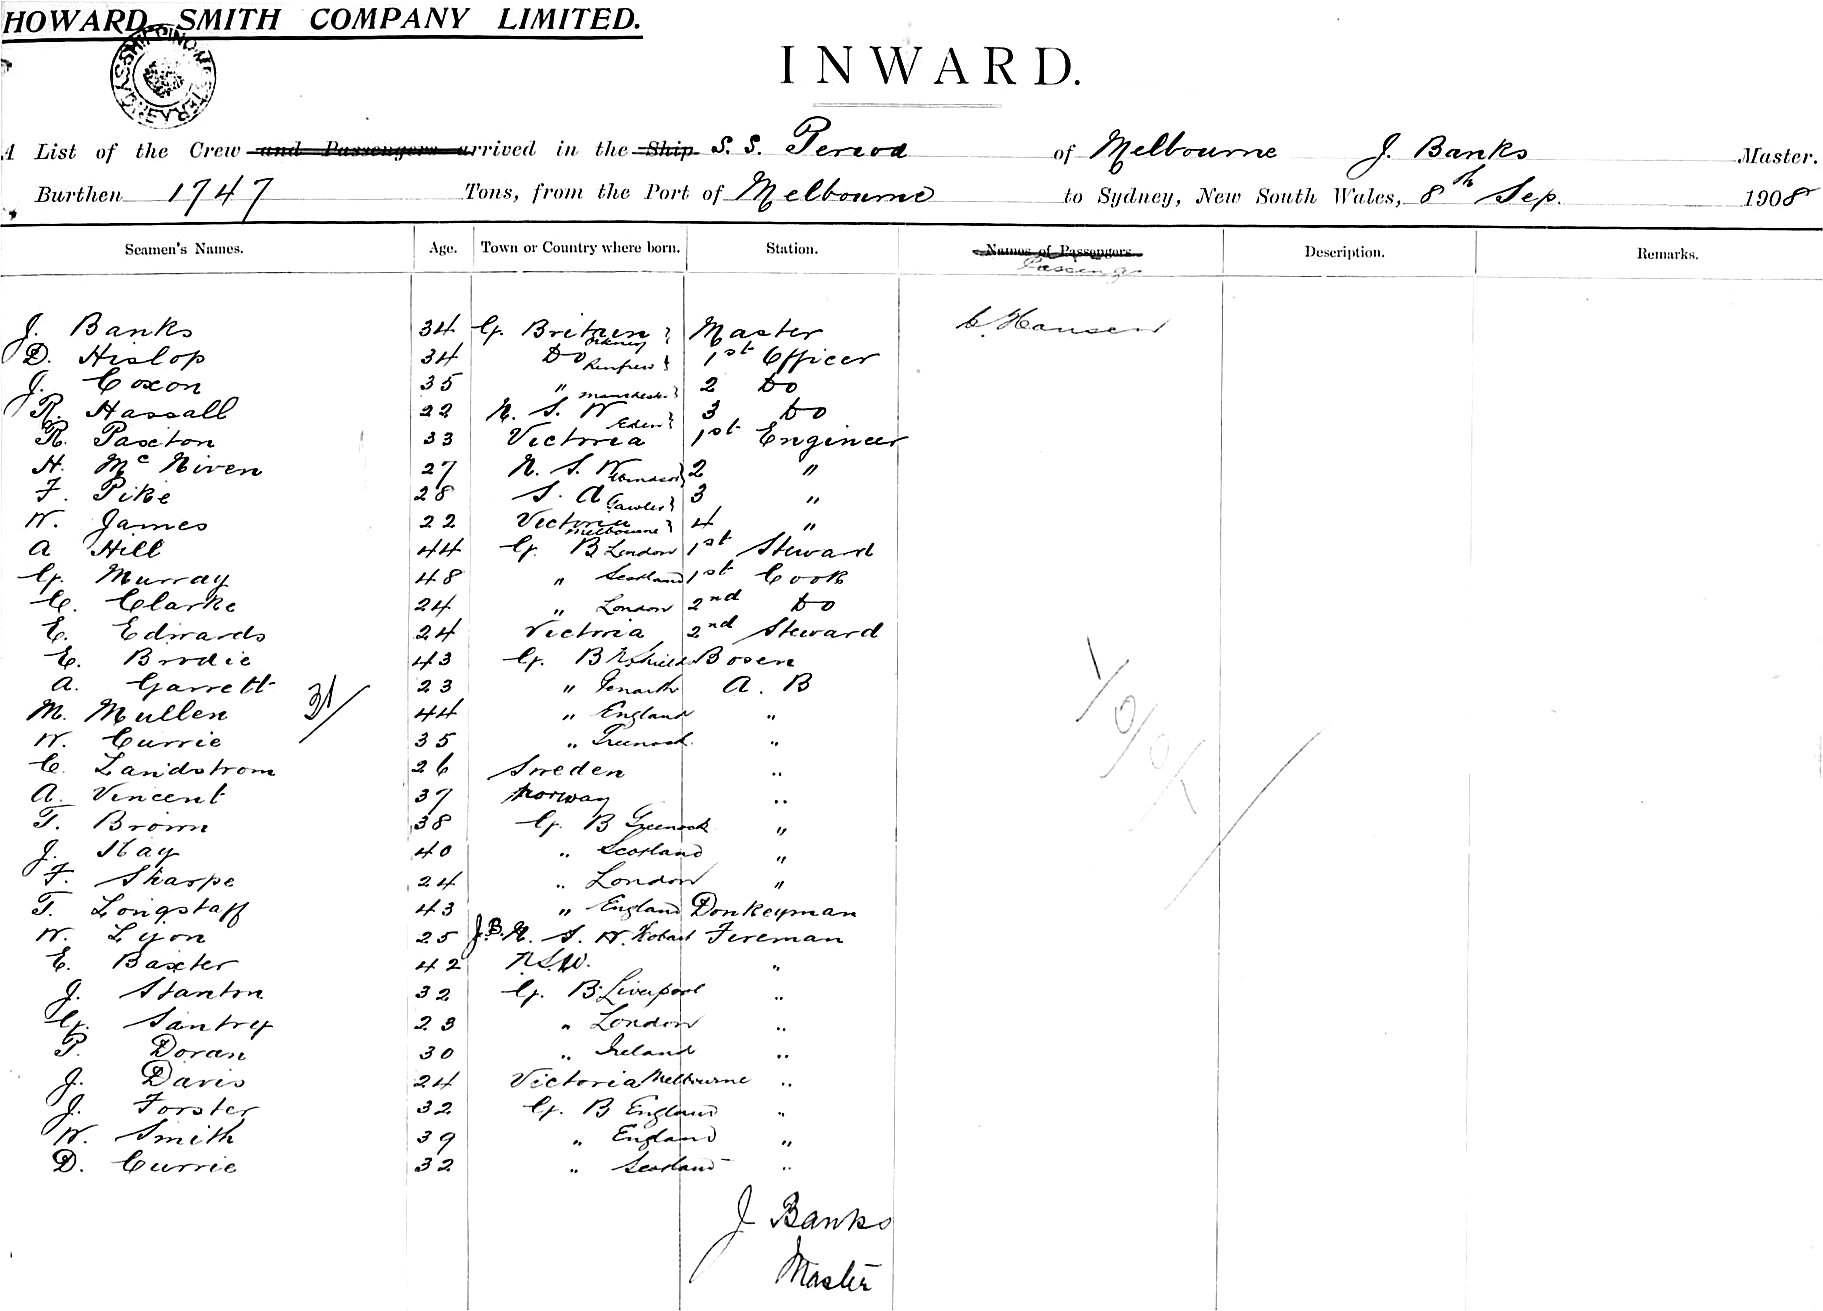 HOWARD SMITH COMPANY LIMITED.
INWARD.
A List of the Crew and Passengers arrived in the Ship S. S. Period of Melbourne J. Banks Master.
Burthen 1747 Tons, from the Port of Melbourne to Sydney, New South Wales, 8th Sep. 1908
Seamen's Names. Age. Town or Country where born. Station. Names of Passengers. Description. Remarks.
Passengs
J. Banks 34 G. Britain Orkney Master C. Hansen
D. Hislop 34 Do Renfrew 1st Officer
J. Coxon 35 " Manchest. 2 Do
R. Hassall 22 N. S. W Eden 3 Do
R. Paxton 33 Victoria 1st Engineer
H. Mc Niven 27 N. S. W Windsor 2 "
F. Pike 28 S. A Gawler 3 "
W. James 22 Victoria Melbourne 4 "
A Hill 44 G. B London 1st Steward
G. Murray 48 " Scotland 1st Cook
C. Clarke 24 " London 2nd Do
E. Edwards 24 Victoria 2nd Steward
E. Brodie 43 G. B N. Shields Bosen
A. Garrett 23 " Penarth A. B
31/
M. Mullen 44 " England "
W. Currie 35 " Greenock "
C. Landstrom 26 Sweden "
A. Vincent 37 Norway "
T. Brown 38 G. B Greenock "
J. Hay 40 " Scotland "
F. Sharpe 24 " London "
T. Longstaff 43 " England Donkeyman
W. Lyon 25 J.B. N. S. W. Hobart Fireman
E. Baxter 42 N.S.W. "
J. Stanton 32 G. B Liverpool "
G. Santry 23 " London "
P. Doran 30 " Ireland "
J. Davis 24 Victoria Melbourne "
J. Forster 32 G. B England "
W. Smith 39 " England "
D. Currie 32 " Scotland "
J Banks
Master